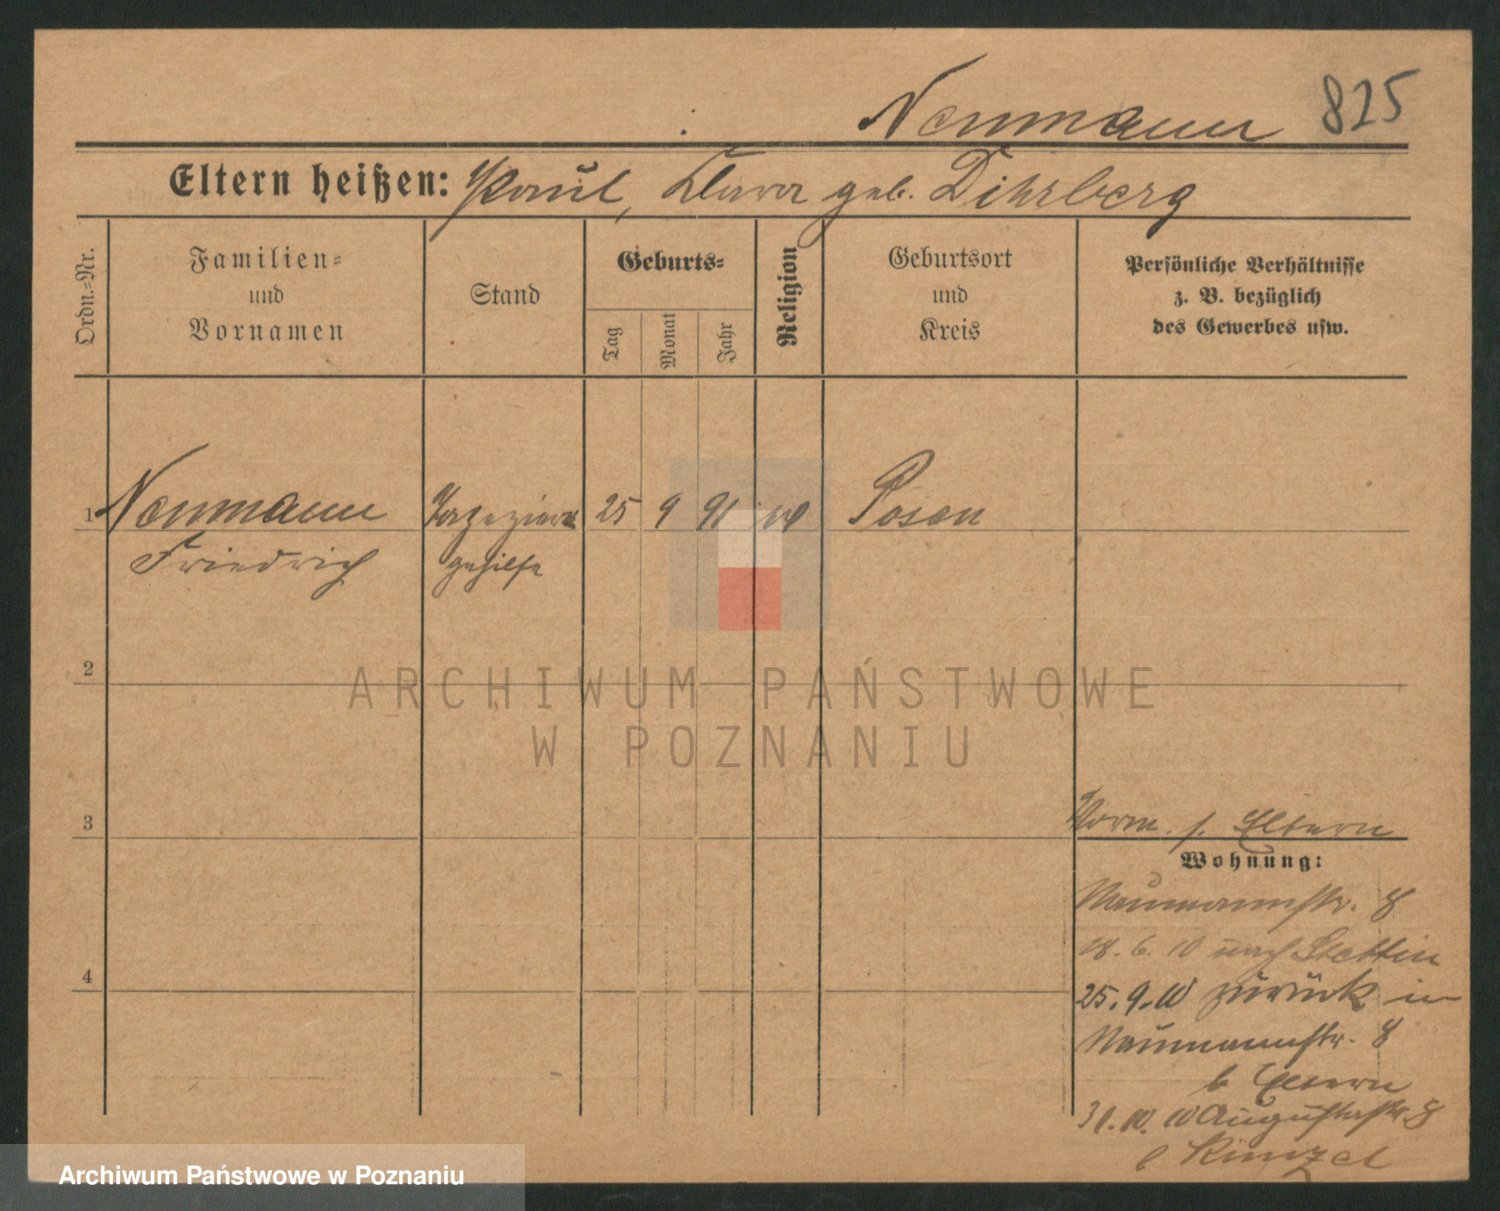 Neumann 825
Eltern heißen: Paul, Klara geb. Dihrberg
Ordn.-Nr.
Familien-
und
Vornamen
Stand
Geburts-
Tag
Monat
Jahr
Religion
Geburtsort
und
Kreis
Persönliche Verhältnisse
z. B. bezüglich
des Gewerbes usw.
1 Neumann Tapezierer 25 9 91 Posen
Friedrich gehilfe
2
ARCHIWUM PAŃSTWOWE
W POZNANIU
3
Vorm. s. Eltern
Wohnung:
Naumannstr. 8
18. 6. 10 nach Stettin
4
25. 9. 10 zurück in
Naumannstr. 8
b Eltern
31. 10. 10 Augustastr. 8
b
Archiwum Państwowe w Poznaniu